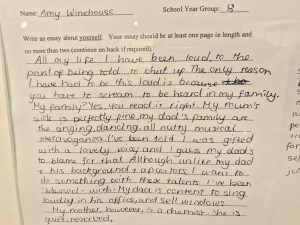 Name: Amy Winehouse School Year Group: 8
Write an essay about yourself. Your essay should be at least one page in length and
no more than two (continue on back if required).
All my life I have been loud, to the
point of being told to shut up. The only reason
I have had to be this loud is because
you have to scream to be heard in my family.
My family? Yes, you read it right. My mum's
side is perfectly fine, my dad's family are
the singing, dancing, all nutty musical
extravaganza. I've been told I was gifted
with a lovely voice and I guess my dad's
to blame for that. Although unlike my dad
+ his background + ancestors, I want to
do something with these talents I've been
blessed with. My dad is content to sing
loudly in his office, and sell windows.
My mother, however, is a chemist. She is
quiet, reserved,